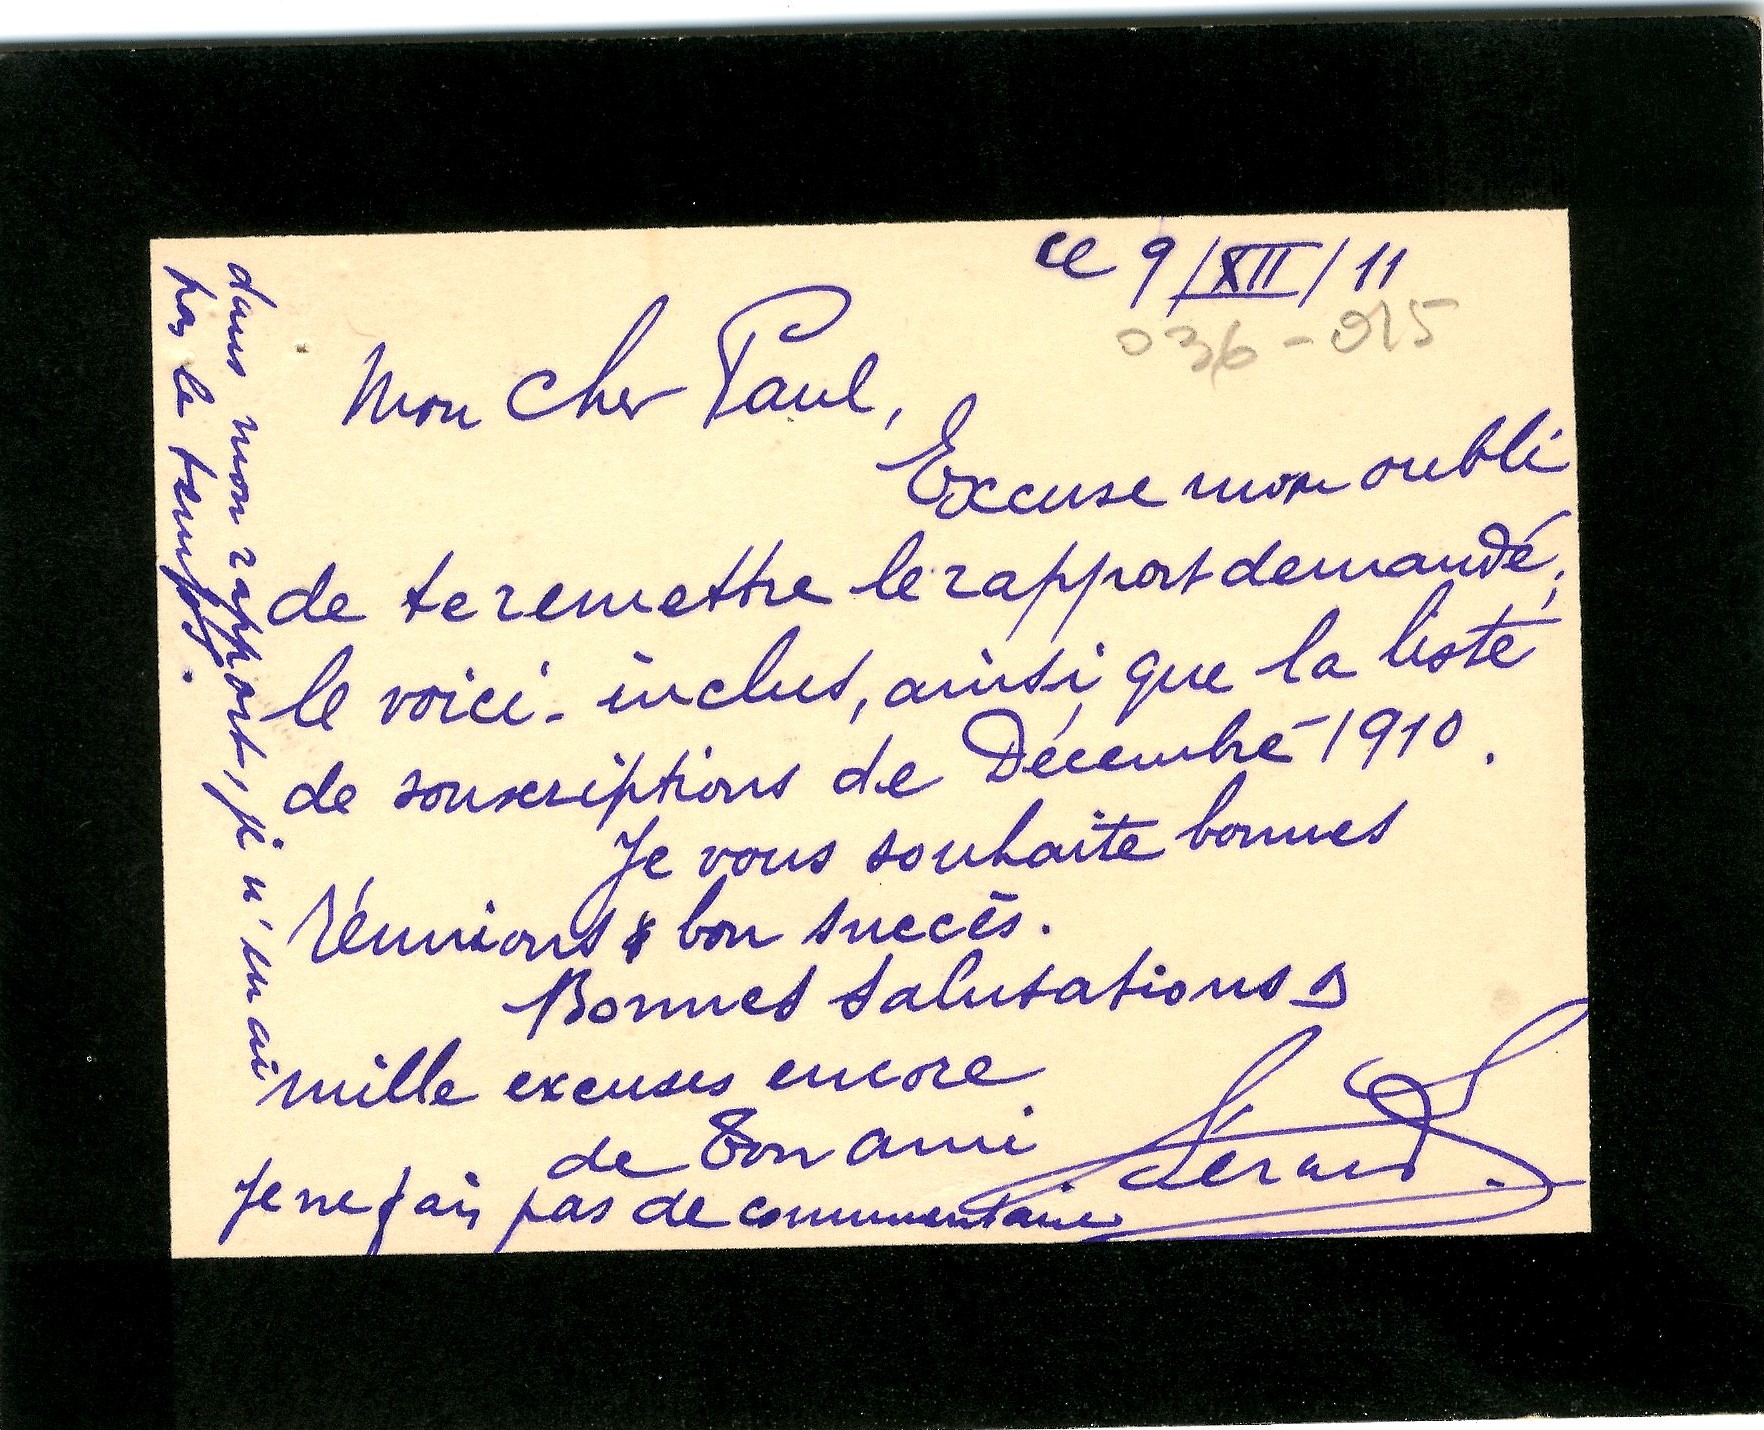 ce 9/XII/11
036-015
Mon Cher Paul,
Excuse mon oubli
de te remettre le rapport demandé,
le voici-inclus, ainsi que la liste
de souscriptions de Décembre 1910.
Je vous souhaite bonnes
réunions & bon succès.
Bonnes salutations &
mille excuses encore
de ton ami
Gérard.
Je ne fais pas de commentaires
dans mon rapport, je n'en ai
pas le temps.